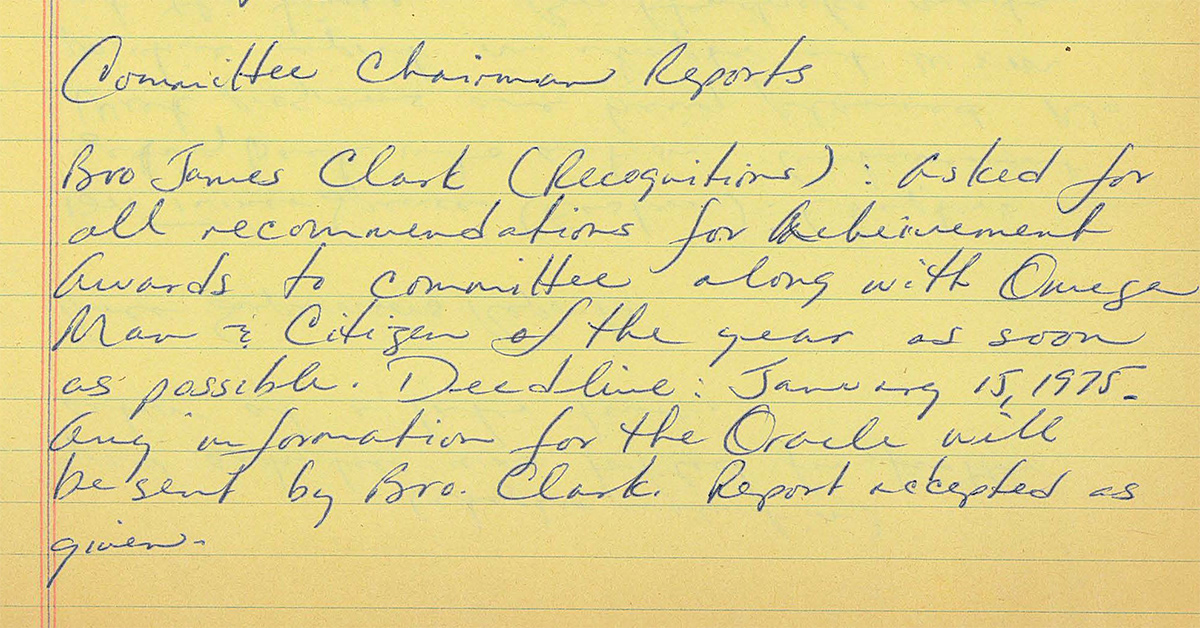 Committee Chairman Reports
Bro James Clark (Recognitions): asked for
all recommendations for Acheivement
Awards to committee along with Omega
Man & Citizen of the year as soon
as possible. Deadline: January 15, 1975.
Any information for the Oracle will
be sent by Bro. Clark. Report accepted as
given.